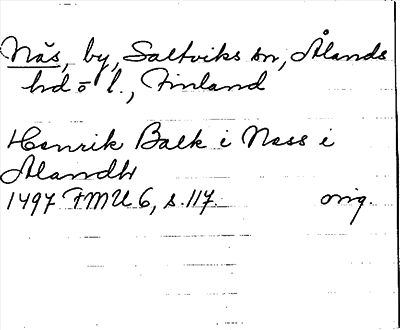 Näs, by, Saltviks sn, Ålands
hd o l., Finland
Henrik Balk i Næss i
Ålandh
1497 FMU 6, s. 117. orig.